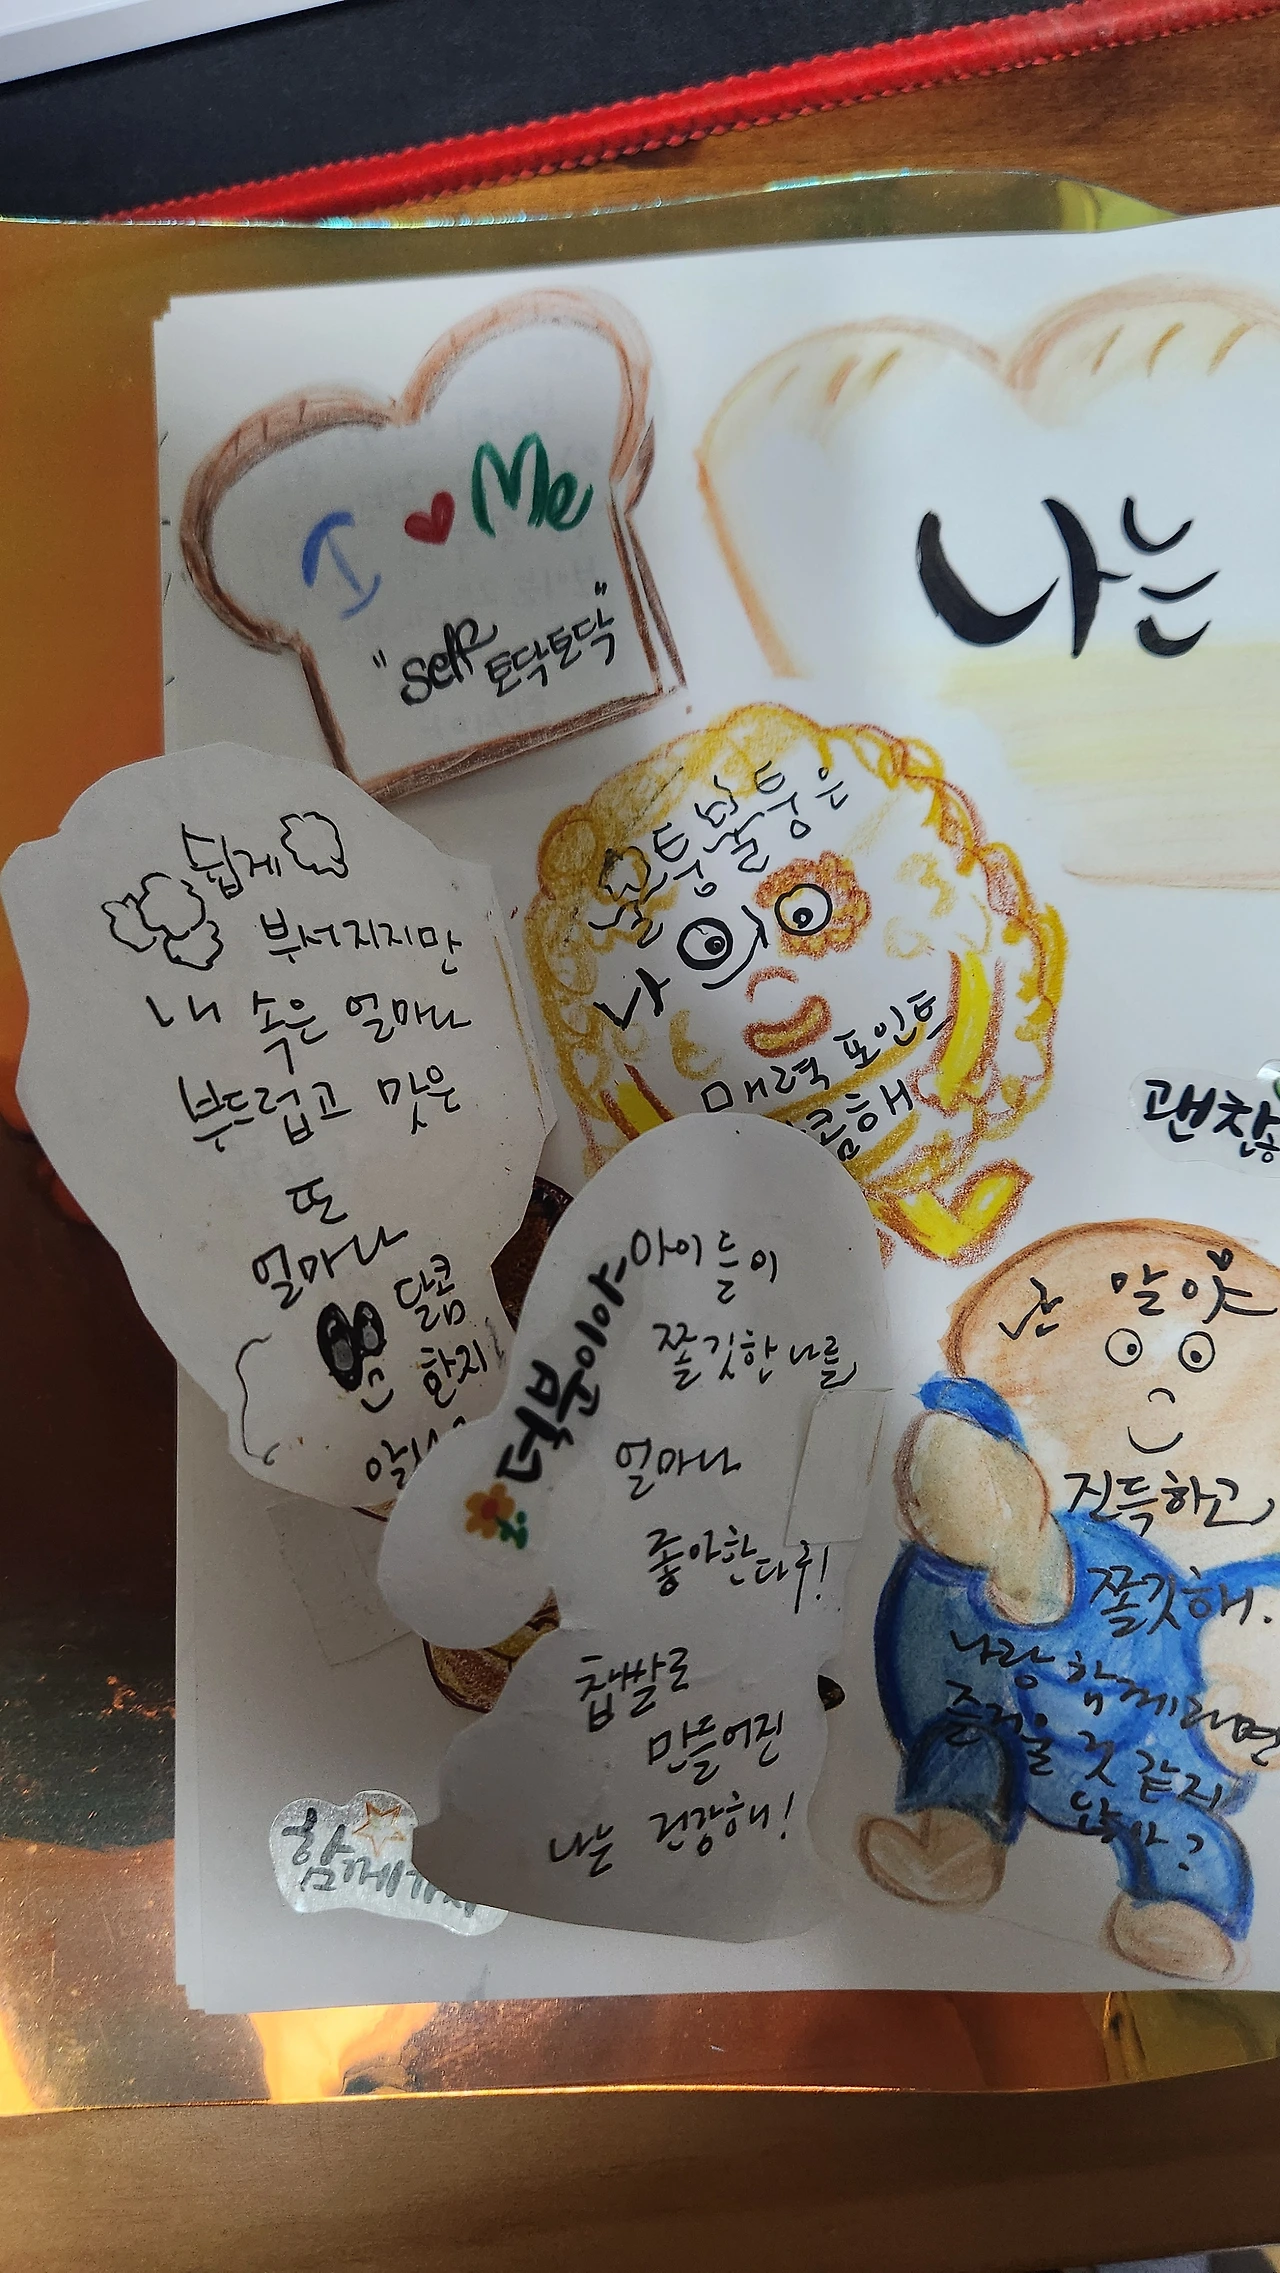 I ♥ Me
"self 토닥토닥"
나는
울퉁불퉁은
나
매력 포인트
쉽게
부서지지만
내 속은 얼마나
부드럽고 맛은
또
얼마나
달콤
한지
덕분이야
아이들이
쫄깃한 나를
얼마나
좋아한다구!
찹쌀로
만들어진
나는 건강해!
난 말야
진득하고
쫄깃해.
나랑 함께라면
즐거울 것 같지
않아?